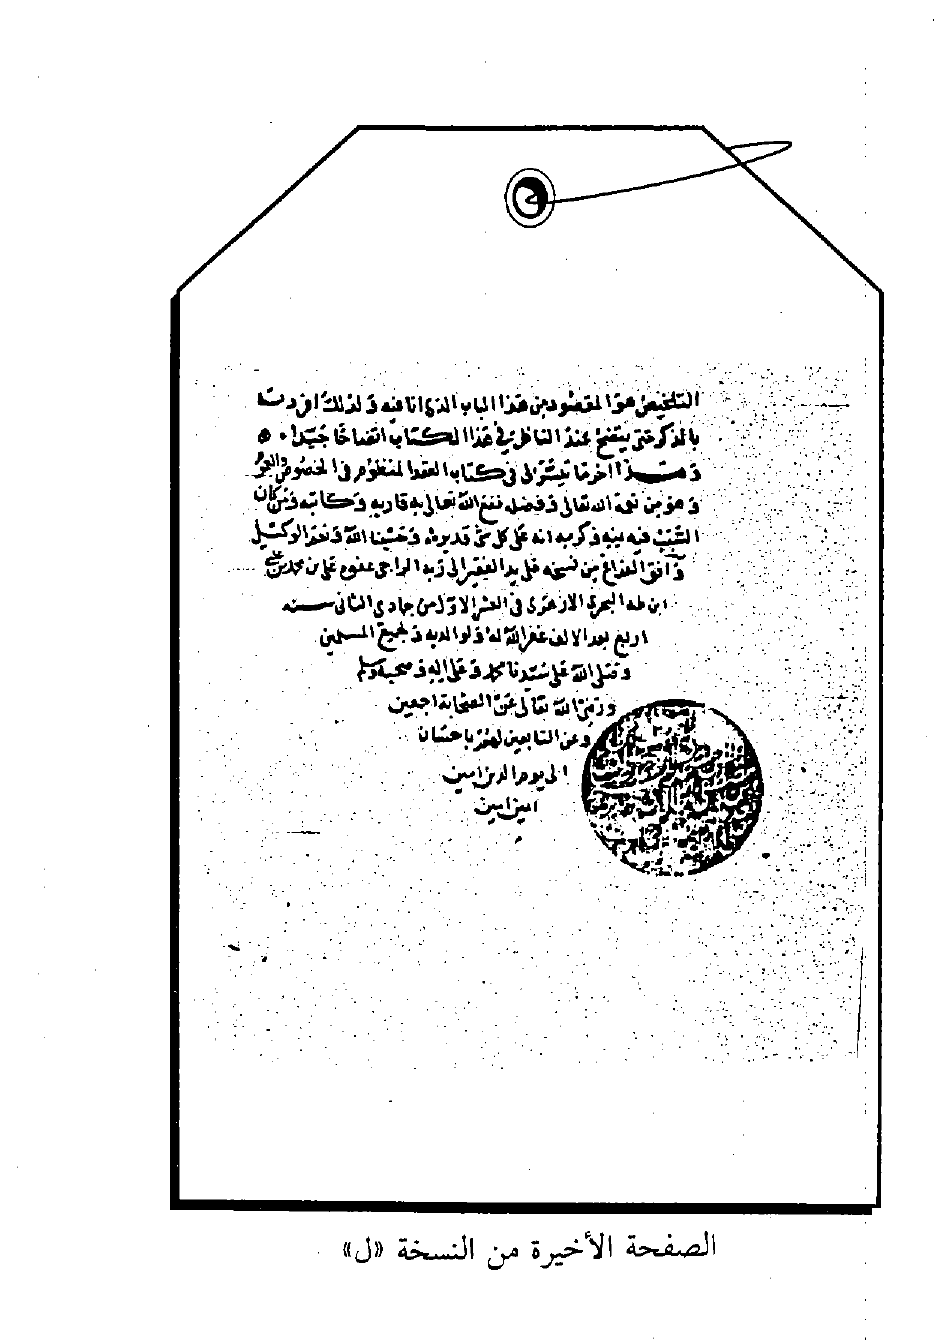 التلخيص هو المقصود من هذا الباب الذي انا فيه ولذلك افردت
بالذكر حتى يتضح عند الناظر في هذا الكتاب اتضاحا جيدا
وهذا اخر ما تيسر لي في كتاب العقد المنظوم في الخصوص والعموم
وهو من نعمة الله تعالى وفضله نفع الله تعالى به قاريه وكاتبه ومن كان
السبب فيه بمنه وكرمه انه على كل شي قدير وحسبنا الله ونعم الوكيل
وافق الفراغ من نسخه على يد الفقير الى ربه الراجي عفوه علي بن محمد بن علي
ابن طه البحري الازهري في العشر الاول من جمادي الثاني سنه
اربع بعد الالف غفر الله له ولوالديه ولجميع المسلمين
وصلى الله على سيدنا محمد وعلى اله وصحبه وسلم
ورضي الله تعالى عن الصحابة اجمعين
وعن التابعين لهم باحسان
الى يوم الدين امين
امين امين
الصفحة الأخيرة من النسخة «ل»